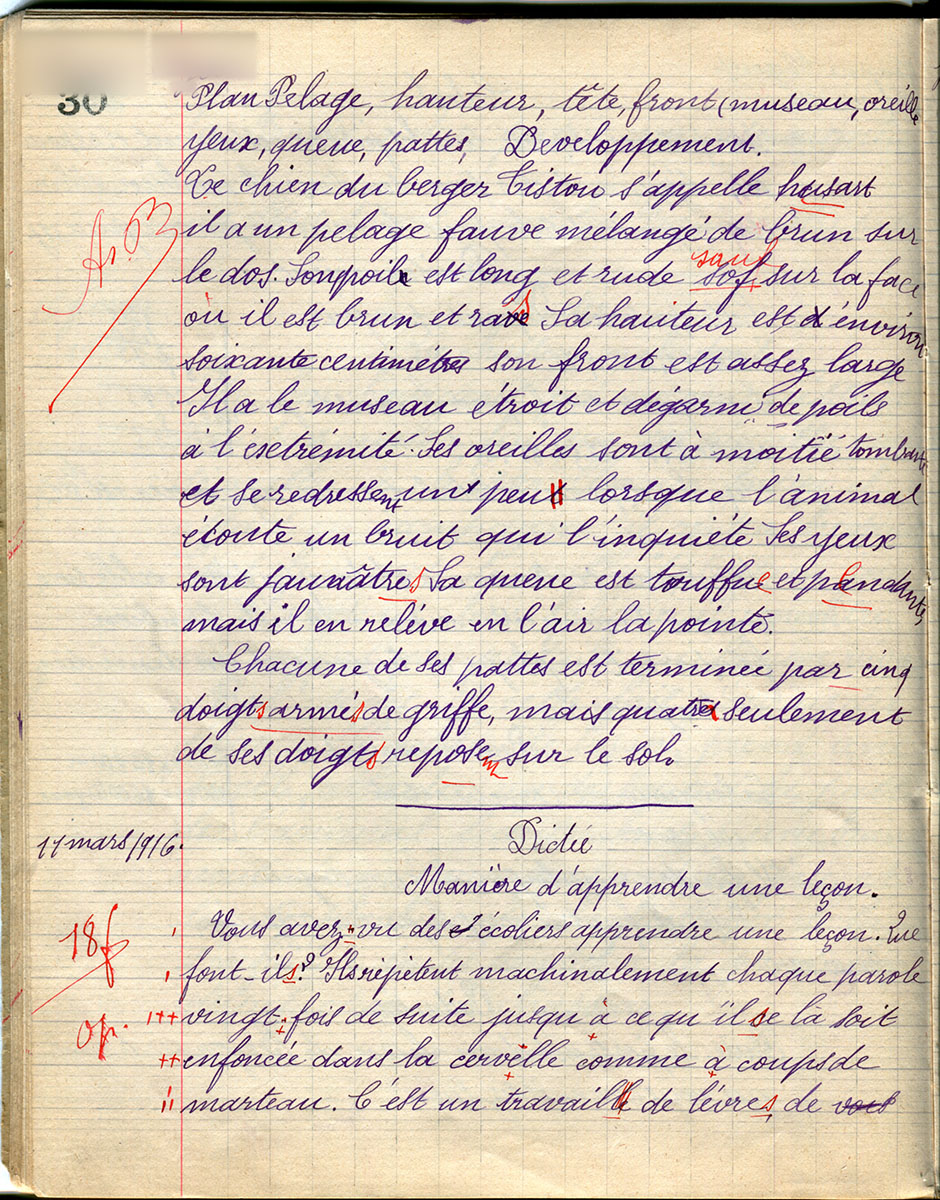 30
Plan Pelage, hauteur, tête, front (museau, oreille
yeux, queue, pattes, Developpement.
Le chien du berger Tistou s'appelle husart
il a un pelage fauve mélangé de brun sur
As. B
sauf
le dos. Son poil est long et rude sof sur la face
où il est brun et ras Sa hauteur est d'environ
soixante centimètres son front est assez large
Il a le museau étroit et dégarni de poils
à l'éxetrémité. Ses oreilles sont à moitié tombante
et se redressent un peu lorsque l'animal
écoute un bruit qui l'inquiéte Ses yeux
sont jaunâtres Sa queue est touffue et pendante,
mais il en reléve en l'air la pointe.
Chacune de ses pattes est terminée par cinq
doigts armés de griffe, mais quatre seulement
de ses doigts reposent sur le sol.
17 mars 1916.
Dictée
Manière d'apprendre une leçon.
18f
Vous avez vu des écoliers apprendre une leçon. Que
font-ils? Ils répètent machinalement chaque parole
op.
vingt fois de suite jusqu'à ce qu'il se la soit
enfoncée dans la cervelle comme à coups de
marteau. C'est un travail de lèvres de